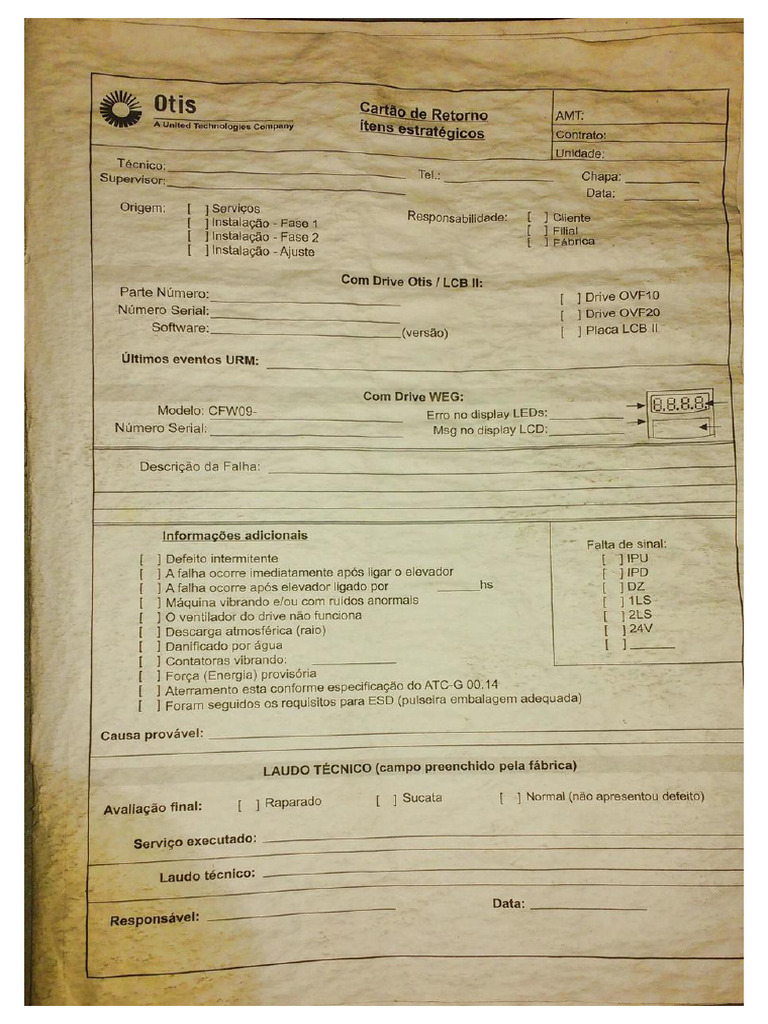 Otis
A United Technologies Company
Cartão de Retorno
ítens estratégicos
AMT:
Contrato:
Unidade:
Técnico:
Tel.:
Chapa:
Supervisor:
Data:
Origem: [ ] Serviços
[ ] Instalação - Fase 1
[ ] Instalação - Fase 2
[ ] Instalação - Ajuste
Responsabilidade: [ ] Cliente
[ ] Filial
[ ] Fábrica
Com Drive Otis / LCB II:
Parte Número:
Número Serial:
Software: (versão)
[ ] Drive OVF10
[ ] Drive OVF20
[ ] Placa LCB II
Últimos eventos URM:
Com Drive WEG:
Modelo: CFW09-
Número Serial:
Erro no display LEDs:
Msg no display LCD:
8.8.8.8.
Descrição da Falha:
Informações adicionais
[ ] Defeito intermitente
[ ] A falha ocorre imediatamente após ligar o elevador
[ ] A falha ocorre após elevador ligado por ______hs
[ ] Máquina vibrando e/ou com ruídos anormais
[ ] O ventilador do drive não funciona
[ ] Descarga atmosférica (raio)
[ ] Danificado por água
[ ] Contatoras vibrando:
[ ] Força (Energia) provisória
[ ] Aterramento esta conforme especificação do ATC-G 00.14
[ ] Foram seguidos os requisitos para ESD (pulseira embalagem adequada)
Falta de sinal:
[ ] IPU
[ ] IPD
[ ] DZ
[ ] 1LS
[ ] 2LS
[ ] 24V
[ ] ______
Causa provável:
LAUDO TÉCNICO (campo preenchido pela fábrica)
Avaliação final: [ ] Raparado [ ] Sucata [ ] Normal (não apresentou defeito)
Serviço executado:
Laudo técnico:
Responsável:
Data: